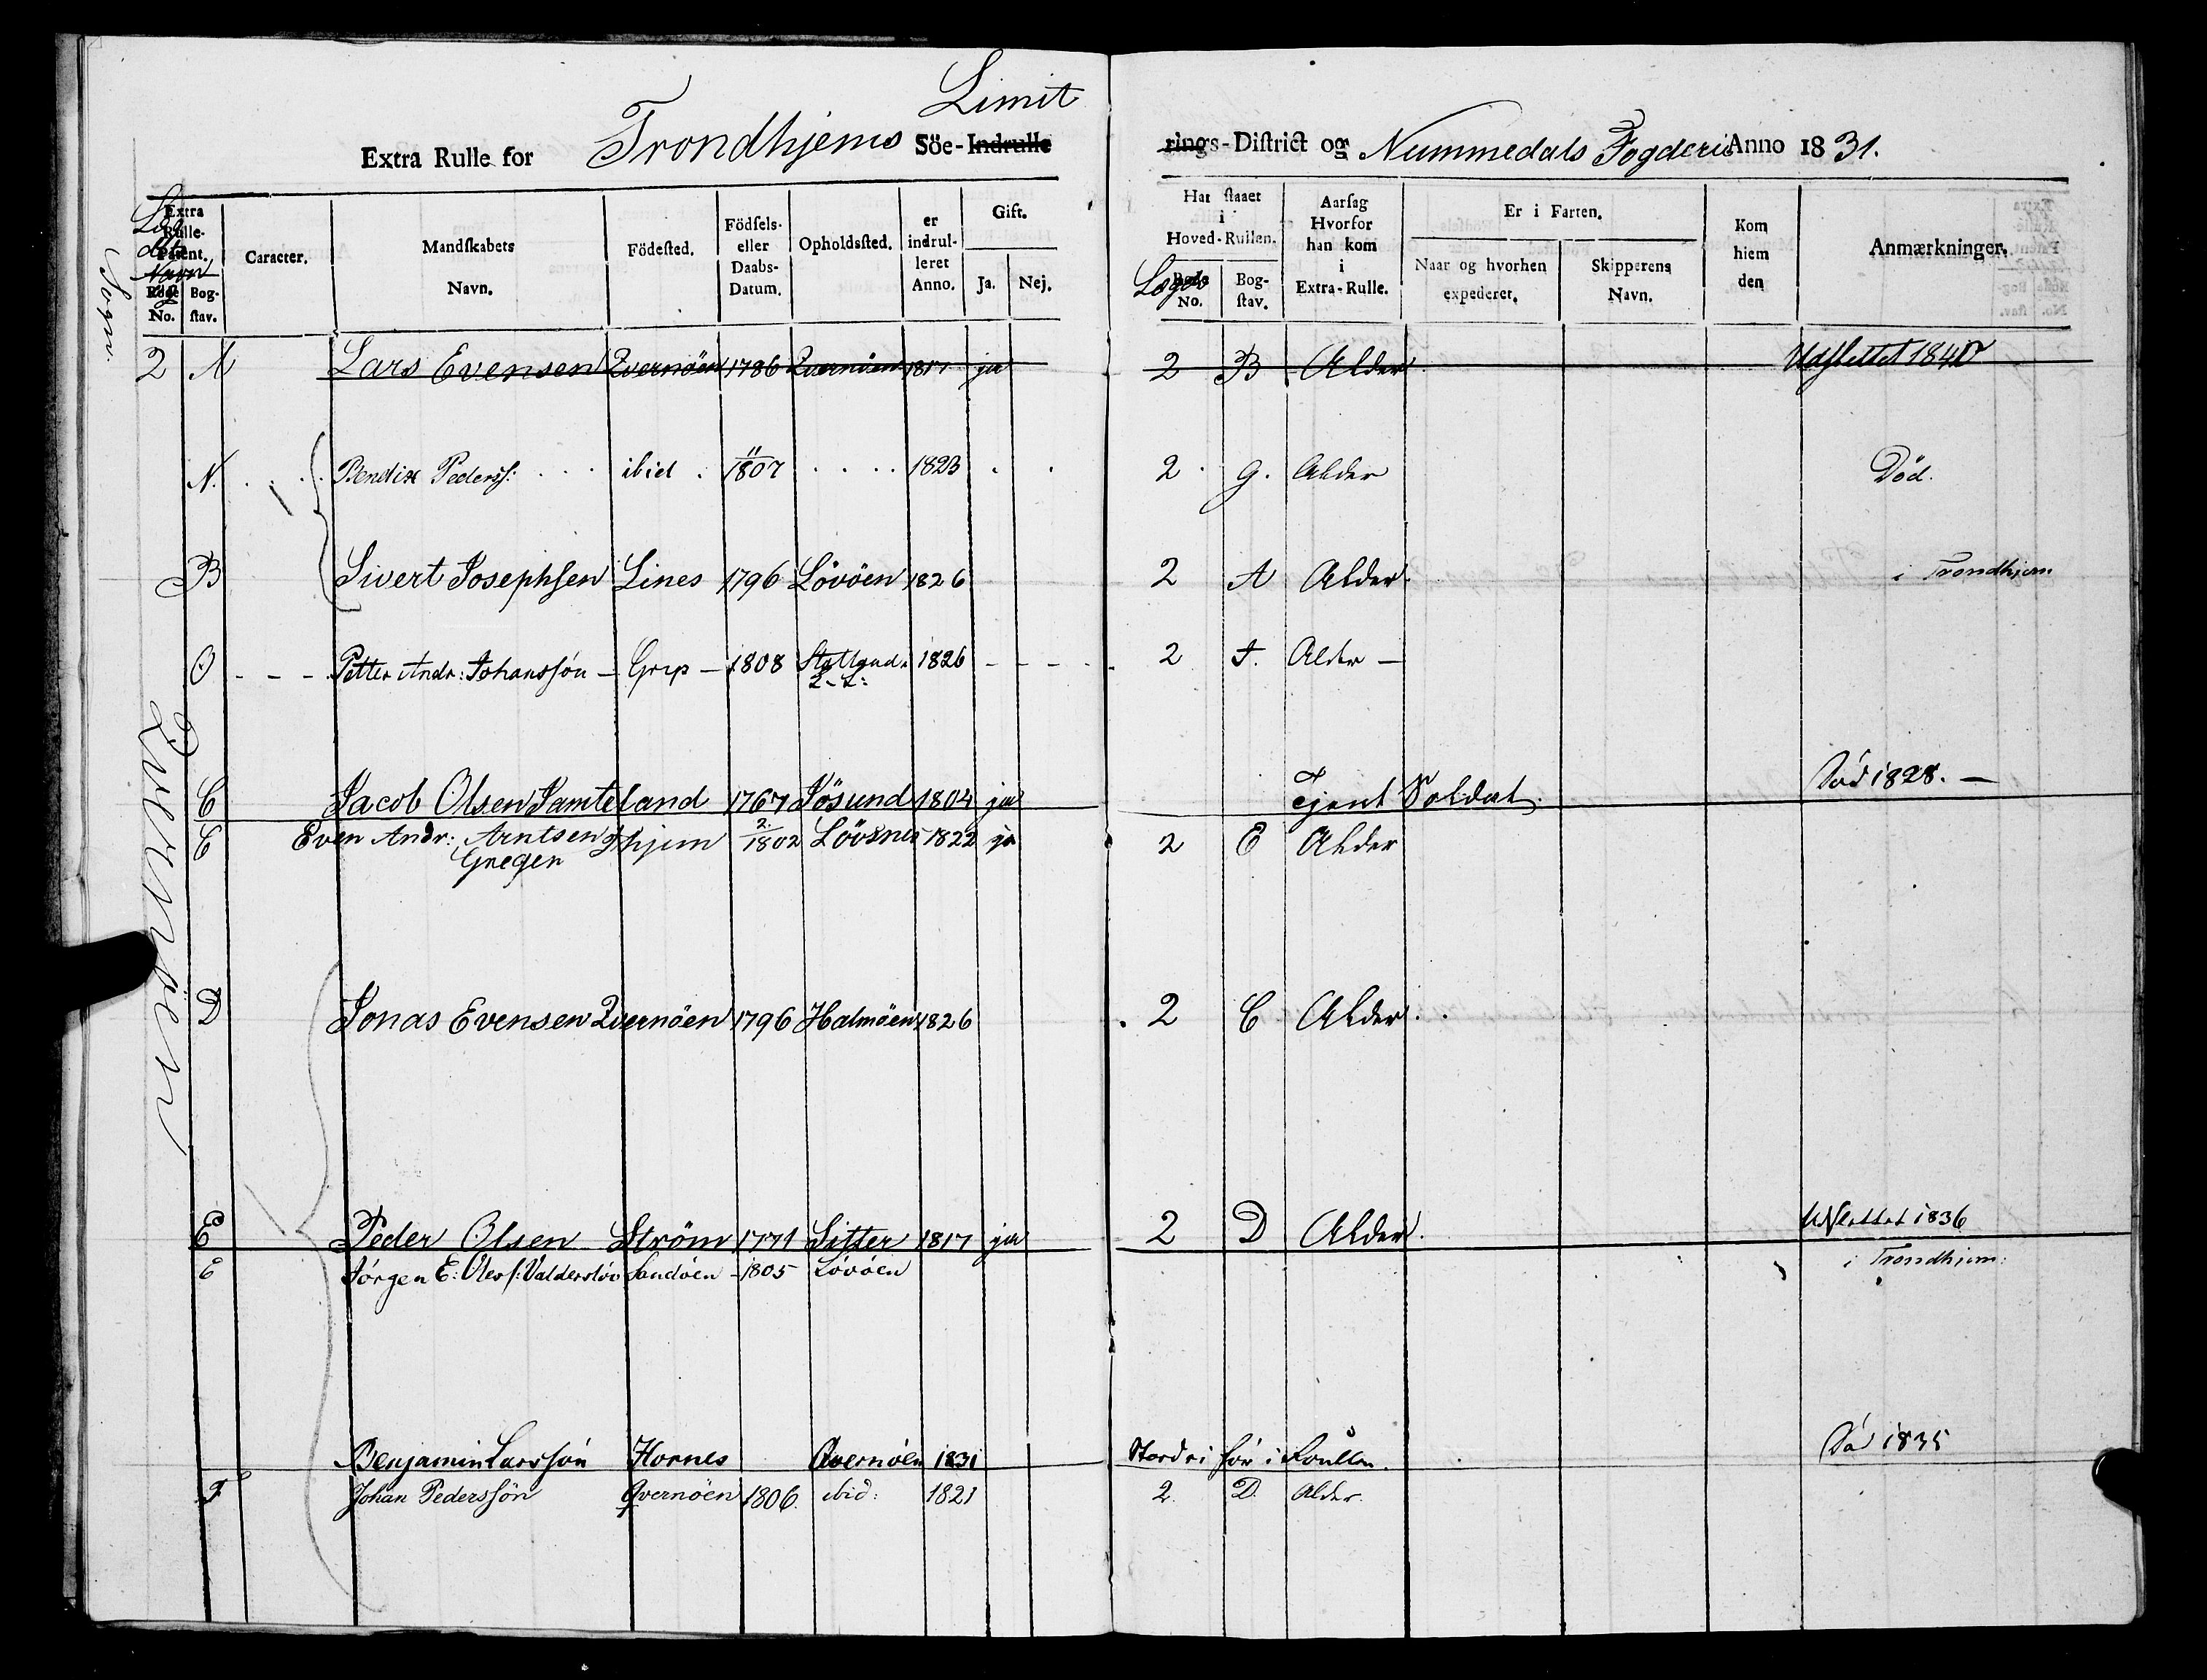 Limit
Extra Rulle for Trondhjems Söe-Indrulle rings-District og Nummedals Fogderie Anno 1831.
Extra Rulle-Patent. Navn Sogn.
Röde No. Bog-stav. Caracter. Mandskabets Navn. Födested. Födsels- eller Daabs-Datum. Opholdssted. er indrulleret Anno. Gift. Ja. Nej. Har staaet i Hoved-Rullen. Lægds No. Bog-stav. Aarsag Hvorfor han kom i Extra-Rulle. Er i Farten. Naar og hvorhen expederet. Skipperens Navn. Kom hiem den Anmærkninger.
2 A Lars Evensen Qvernöen 1786 Qvernöen 1817 ja 2 B Alder Udslettet 1840
N. Bendix Peders: ibid 11/1807 1823 2 G. Alder Död.
B Sivert Josephsen Lines 1796 Lövöen 1826 2 A Alder. i Trondhjem
O Petter Andr: Johanssön Grip 1808 1826 2 F. Alder
Qvernöen
C Jacob Olsen Jamteland 1767 Jösund 1804 ja Tjent Soldat. Död 1828.
C Even Andr: Arntsen Thjem 2/1802 Lövsnes 1822 ja 2 E Alder
Greger
D Jonas Evensen Qvernöen 1796 Halmöen 1826 2 C Alder.
E Peder Olsen Ström 1771 Sitter 1817 ja 2 D Alder. Uslettet 1836
E Jörgen E: Oles: Valdersløv Sandöen 1805 Lövöen i Trondhjem:
Benjamin Larssön Hornes Qvernöen 1831 för i Roullen. Död 1835
F Johan Pederssön Qvernöen 1806. ibid: 1821 2. D. Alder.